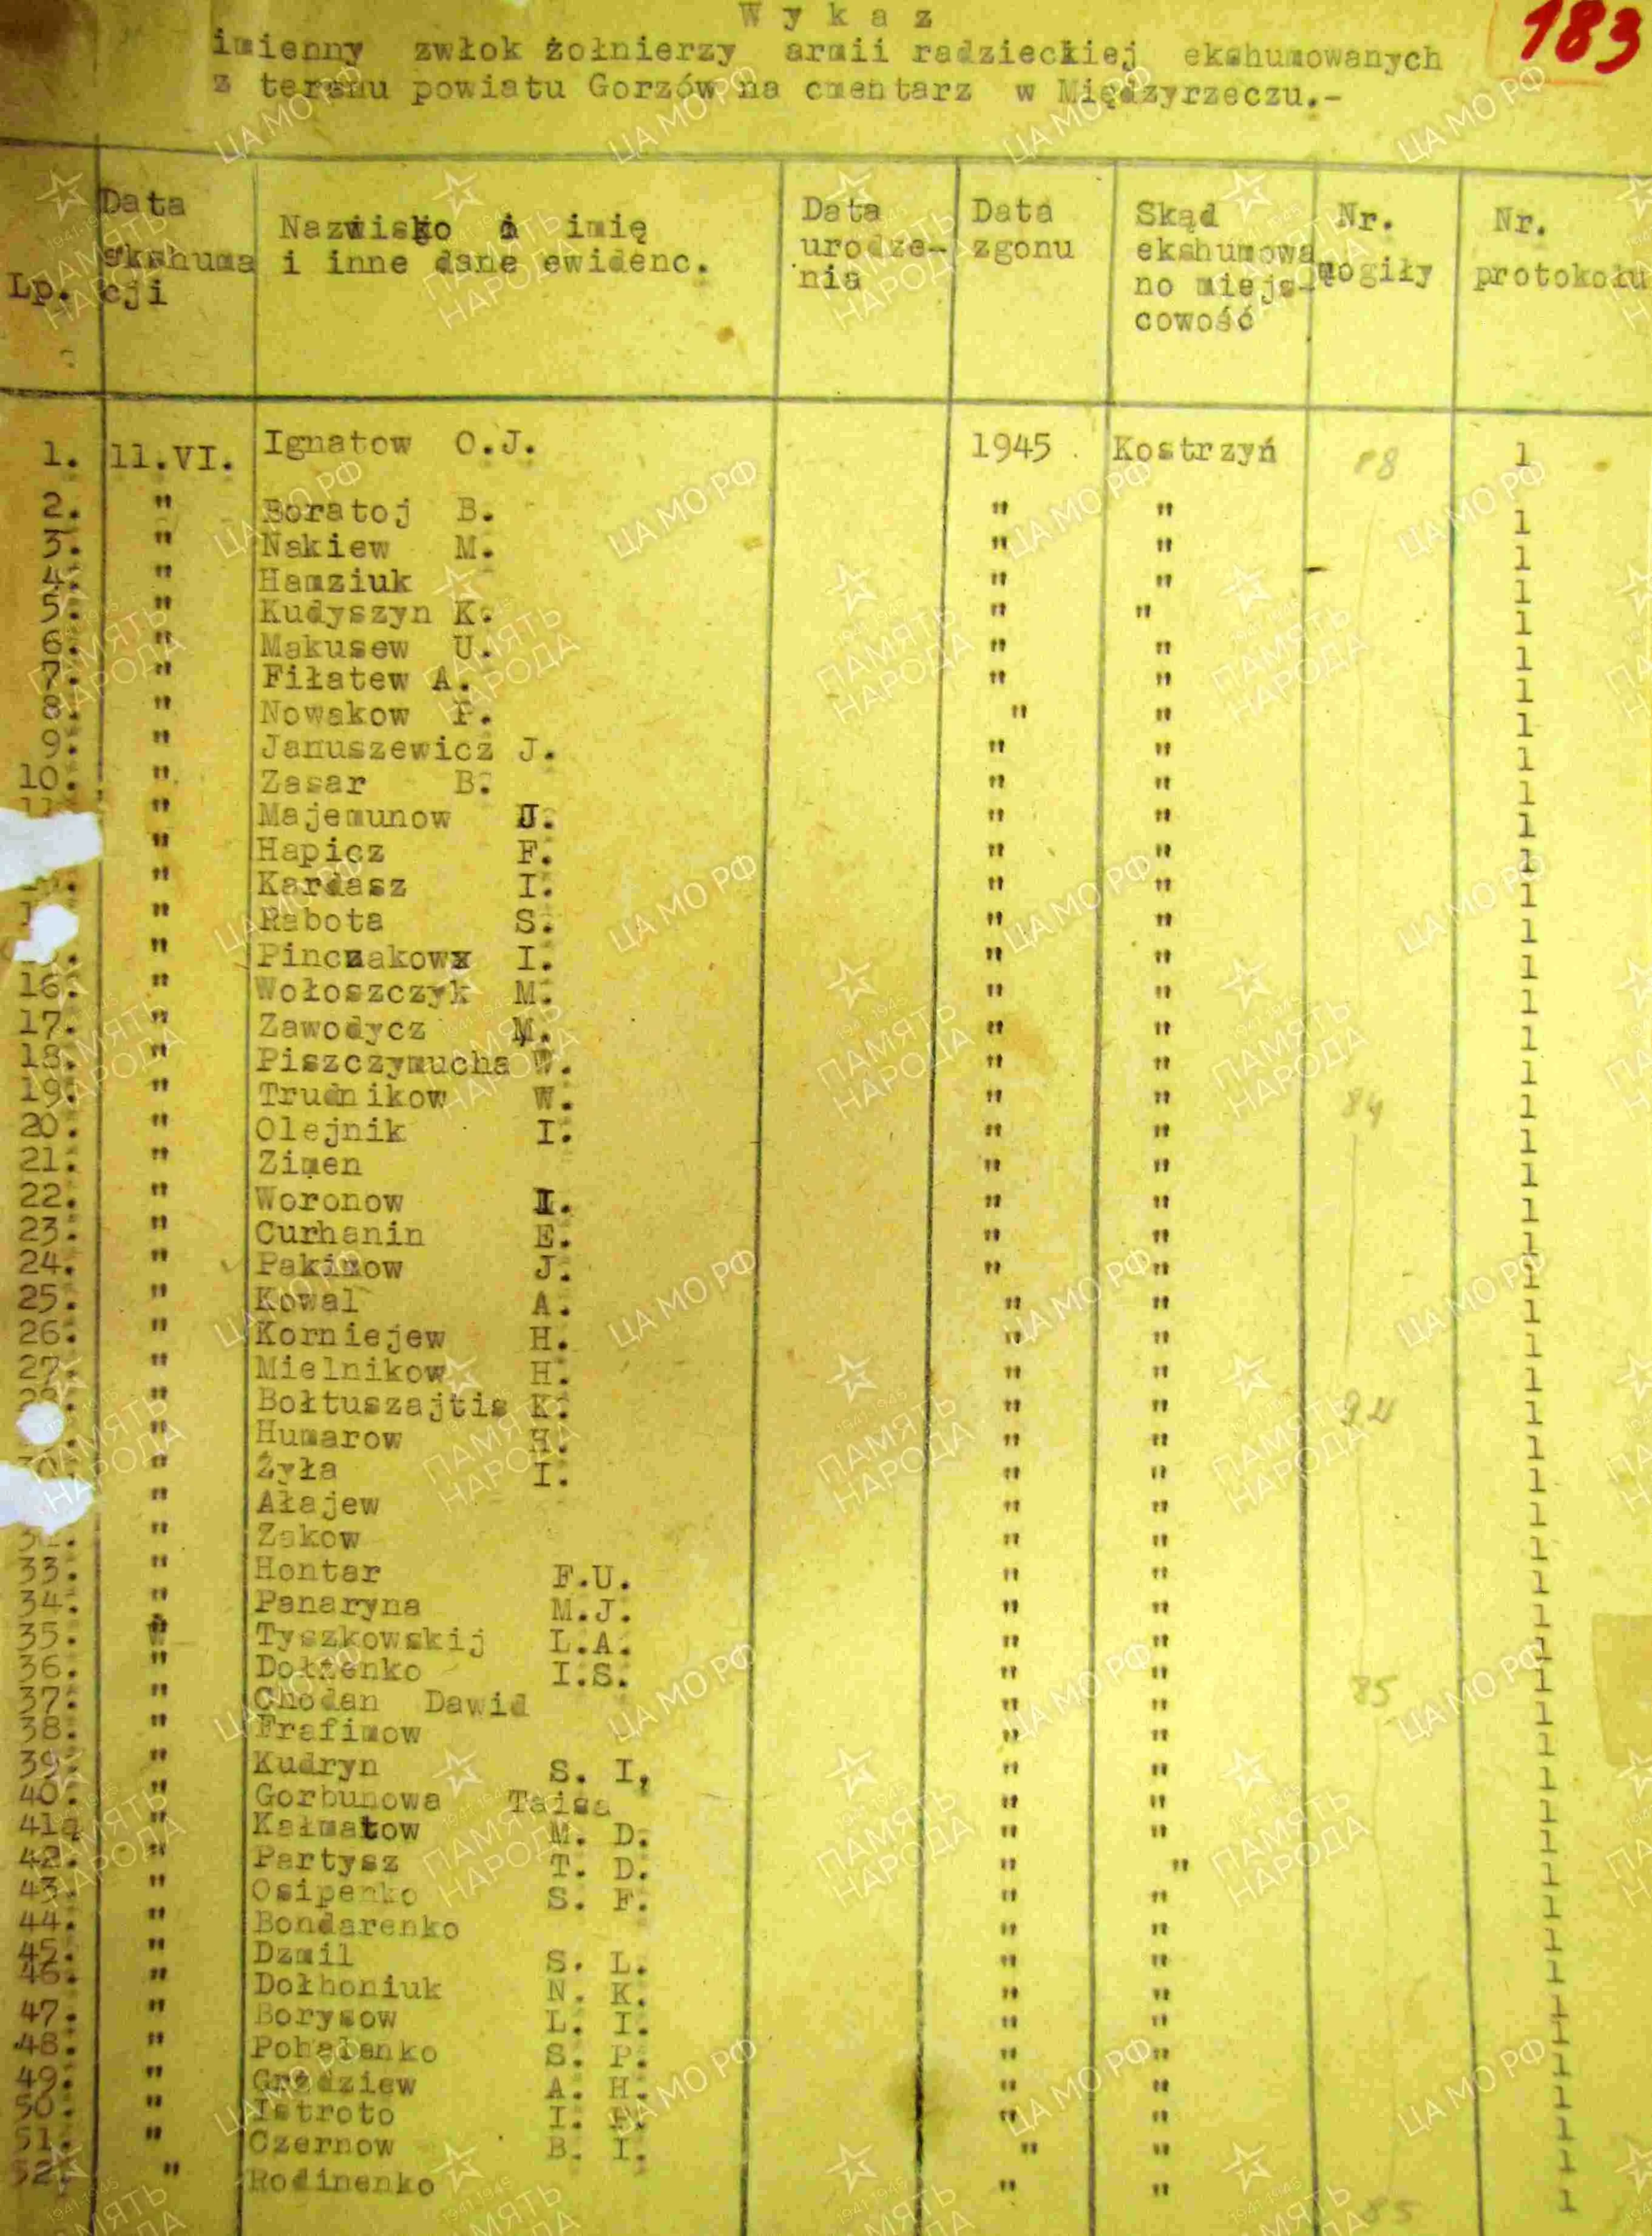 183
Wykaz
imienny zwłok żołnierzy armii radzieckiej ekshumowanych
z terenu powiatu Gorzów na cmentarz w Międzyrzeczu.-
Lp. Data ekshuma cji Nazwisko i imię i inne dane ewidenc. Data urodze- nia Data zgonu Skąd ekshumowa no miejs- cowość Nr. mogiły Nr. protokołu
1. 11.VI. Ignatow O.J. 1945 Kostrzyń 88 1
2. " Boratoj B. " " 1
3. " Nakiew M. " " 1
4. " Hamziuk " " 1
5. " Kudyszyn K. " " 1
6. " Makusew U. " " 1
7. " Fiłatew A. " " 1
8. " Nowakow P. " " 1
9. " Januszewicz J. " " 1
10. " Zasar B. " " 1
" Majemunow J. " " 1
" Hapicz F. " " 1
" Kardasz I. " " 1
" Rabota S. " " 1
" Pinczakowx I. " " 1
16. " Wołoszczyk M. " " 1
17. " Zawodycz M. " " 1
18. " Piszczymucha W. " " 1
19. " Trudnikow W. " " 84 1
20. " Olejnik I. " " 1
21. " Zimen " " 1
22. " Woronow I. " " 1
23. " Curhanin E. " " 1
24. " Pakimow J. " " 1
25. " Kowal A. " " 1
26. " Korniejew H. " " 1
27. " Mielnikow H. " " 1
" Bołtuszajtis K. " " 1
" Humarow H. " " 1
" Żyła I. " " 1
" Ałajew " " 1
" Zakow " " 1
33. " Hontar F.U. " " 1
34. " Panaryna M.J. " " 1
35. " Tyszkowskij L.A. " " 1
36. " Dołżenko I.S. " " 1
37. " Chodan Dawid " " 85 1
38. " Frafimow " " 1
39. " Kudryn S. I, " " 1
40. " Gorbunowa Taisa " " 1
41. " Kałmatow M. D. " " 1
42. " Partysz T. D. " " 1
43. " Osipenko S. F. " " 1
44. " Bondarenko " " 1
45. " Dzmil S. L. " " 1
46. " Dołhoniuk N. K. " " 1
47. " Borysow L. I. " " 1
48. " Pohalanko S. P. " " 1
49. " Gradziew A. H. " " 1
50. " Istroto I. " " 1
51. " Czernow B. I. " " 1
52. " Rodinenko " " 85 1
ЦА МО РФ
ПАМЯТЬ НАРОДА
1941-1945